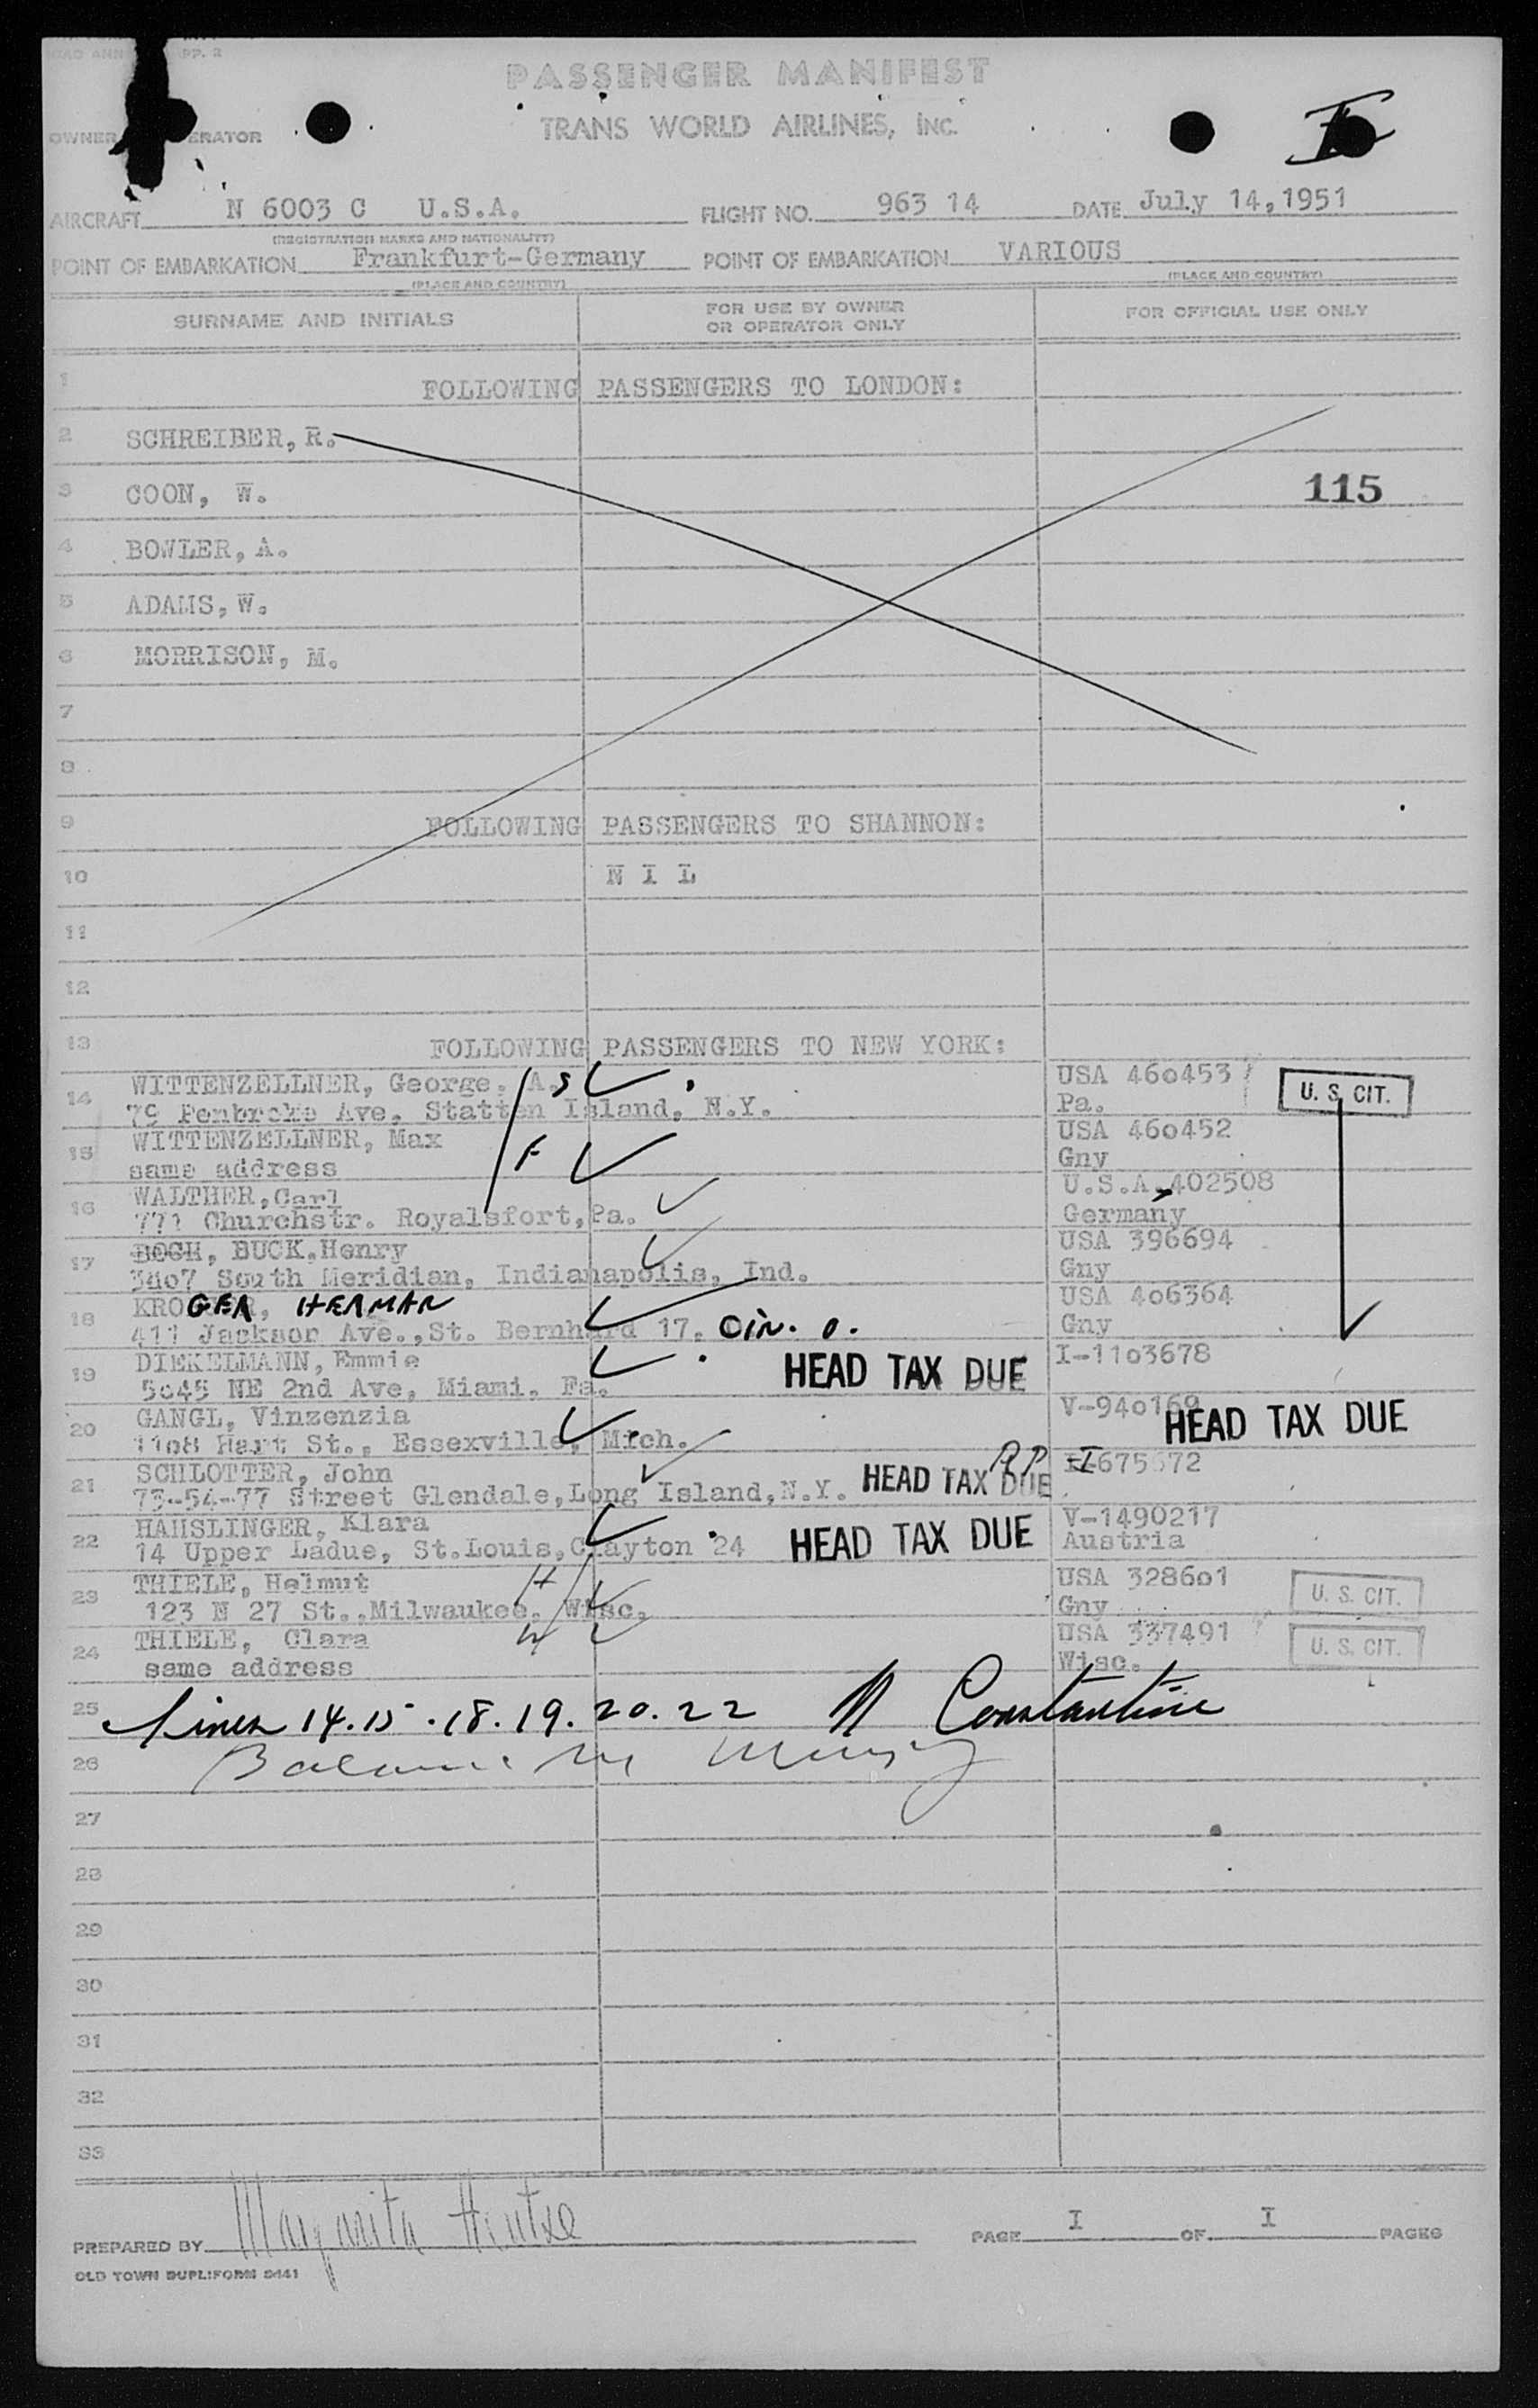 PP. 2
PASSENGER MANIFEST
OWNER ERATOR
TRANS WORLD AIRLINES, INC.
AIRCRAFT N 6003 C U.S.A. FLIGHT NO. 963 14 DATE July 14,1951
(REGISTRATION MARKS AND NATIONALITY)
POINT OF EMBARKATION Frankfurt-Germany POINT OF EMBARKATION VARIOUS
(PLACE AND COUNTRY) (PLACE AND COUNTRY)
SURNAME AND INITIALS FOR USE BY OWNER OR OPERATOR ONLY FOR OFFICIAL USE ONLY
1 FOLLOWING PASSENGERS TO LONDON:
2 SCHREIBER, R.
3 COON, W. 115
4 BOWLER, A.
5 ADAMS, W.
6 MORRISON, M.
7
8
9 FOLLOWING PASSENGERS TO SHANNON:
10 N I L
11
12
13 FOLLOWING PASSENGERS TO NEW YORK:
14 WITTENZELLNER, George. A. S USA 460453 U. S. CIT.
79 Penbroke Ave, Statten Island, N.Y. Pa.
15 WITTENZELLNER, Max F USA 460452
same address Gny
16 WALTHER, Carl U.S.A. 402508
771 Churchstr. Royalsfort, Pa. Germany
17 BOCH, BUCK, Henry USA 396694
3807 South Meridian, Indianapolis, Ind. Gny
18 KROGER, HERMAN USA 406364
411 Jackson Ave., St. Bernhard 17, Cin. O. Gny
19 DIEKELMANN, Emmie HEAD TAX DUE I-1103678
5045 NE 2nd Ave, Miami. Fa.
20 GANGL, Vinzenzia V-940169 HEAD TAX DUE
1108 Hart St., Essexville, Mich.
21 SCHLOTTER, John RP I 675672
73-54-77 Street Glendale, Long Island, N.Y. HEAD TAX DUE
22 HAUSLINGER, Klara V-1490217
14 Upper Ladue, St.Louis, Clayton 24 HEAD TAX DUE Austria
23 THIELE, Helmut H USA 328601 U. S. CIT.
123 N 27 St., Milwaukee. Wisc. Gny
24 THIELE, Clara W USA 337491 U. S. CIT.
same address Wisc.
25 Lines 14.15.18.19.20.22 Constantine
26 Balance
27
28
29
30
31
32
33
PREPARED BY Margarita PAGE I OF I PAGES
OLD TOWN DUPLIFORM 5441